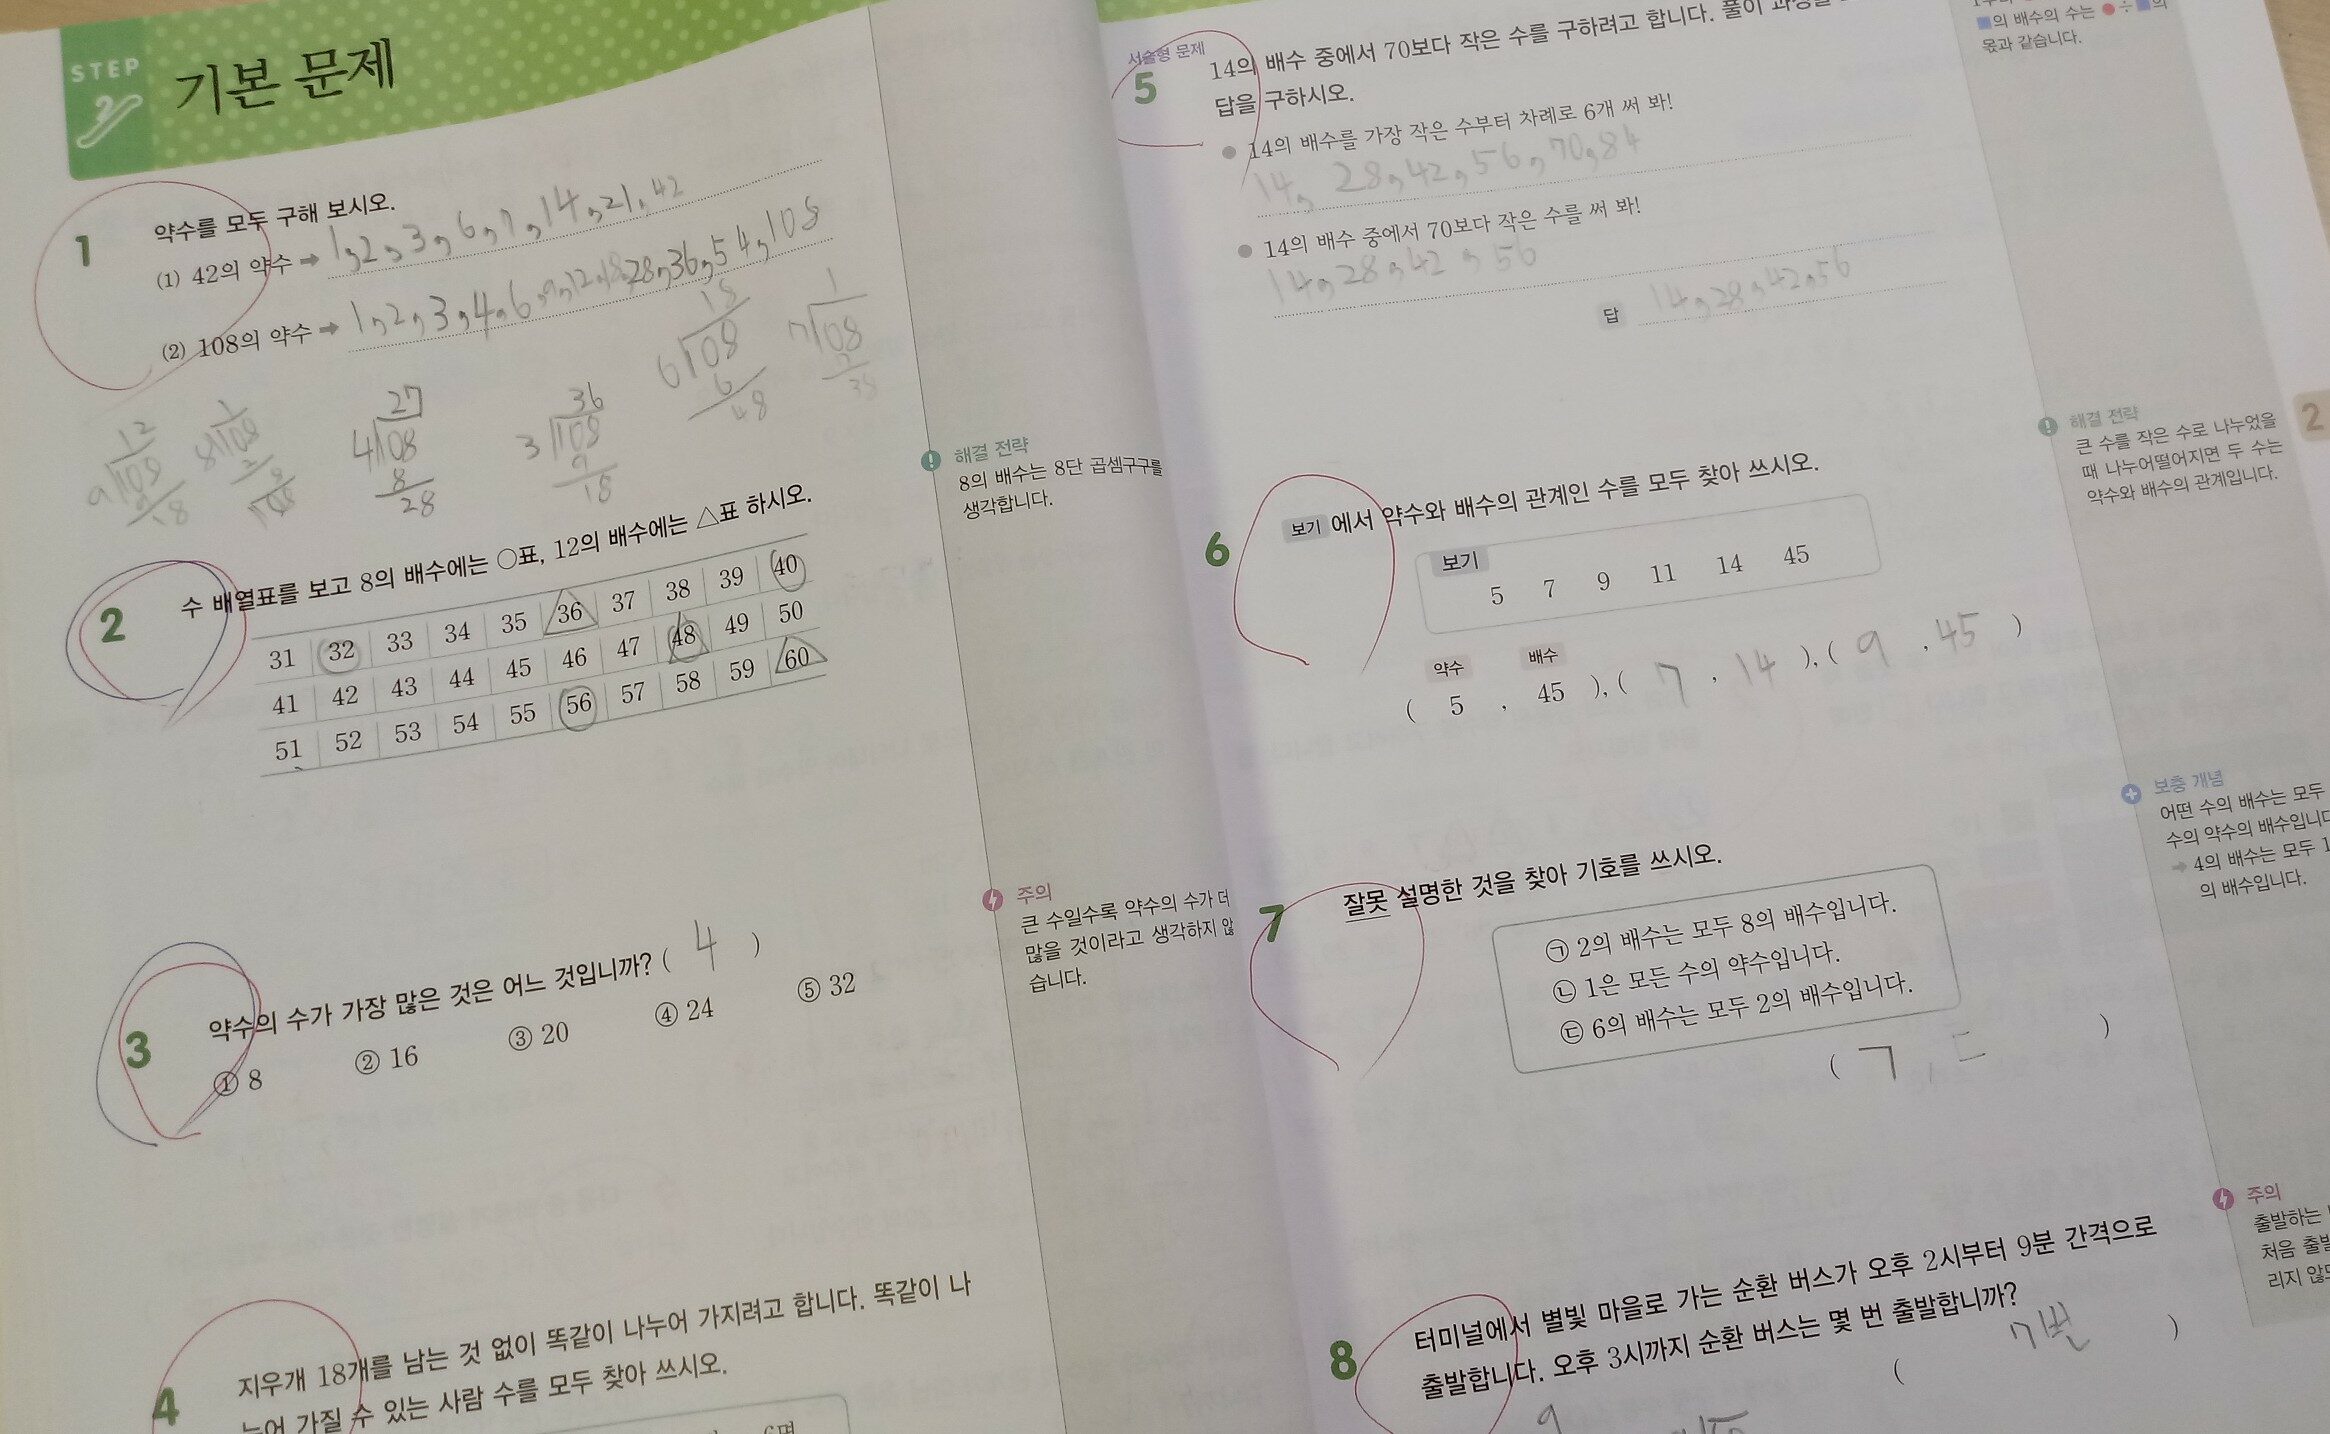 STEP
2
기본 문제
1 약수를 모두 구해 보시오.
(1) 42의 약수 → 1, 2, 3, 6, 7, 14, 21, 42
(2) 108의 약수 → 1, 2, 3, 4, 6, 9, 12, 18, 28, 36, 54, 108
12
9)108
9
18
8)108
27
4)108
8
28
36
3)108
9
18
18
6)108
6
48
1
7)108
7
38
해결 전략
8의 배수는 8단 곱셈구구를
생각합니다.
2 수 배열표를 보고 8의 배수에는 ○표, 12의 배수에는 △표 하시오.
31 32 33 34 35 36 37 38 39 40
41 42 43 44 45 46 47 48 49 50
51 52 53 54 55 56 57 58 59 60
주의
큰 수일수록 약수의 수가 더
많을 것이라고 생각하지 않
습니다.
3 약수의 수가 가장 많은 것은 어느 것입니까? ( 4 )
① 8 ② 16 ③ 20 ④ 24 ⑤ 32
4 지우개 18개를 남는 것 없이 똑같이 나누어 가지려고 합니다. 똑같이 나
누어 가질 수 있는 사람 수를 모두 찾아 쓰시오.
6명
서술형 문제
5 14의 배수 중에서 70보다 작은 수를 구하려고 합니다. 풀이 과정을
답을 구하시오.
● 14의 배수를 가장 작은 수부터 차례로 6개 써 봐!
14, 28, 42, 56, 70, 84
● 14의 배수 중에서 70보다 작은 수를 써 봐!
14, 28, 42, 56
답 14, 28, 42, 56
■의 배수의 수는 ●÷■의
몫과 같습니다.
2
해결 전략
큰 수를 작은 수로 나누었을
때 나누어떨어지면 두 수는
약수와 배수의 관계입니다.
6 보기 에서 약수와 배수의 관계인 수를 모두 찾아 쓰시오.
보기
5 7 9 11 14 45
약수 배수
( 5 , 45 ), ( 7 , 14 ), ( 9 , 45 )
보충 개념
어떤 수의 배수는 모두
수의 약수의 배수입니다
→ 4의 배수는 모두 1
의 배수입니다.
7 잘못 설명한 것을 찾아 기호를 쓰시오.
㉠ 2의 배수는 모두 8의 배수입니다.
㉡ 1은 모든 수의 약수입니다.
㉢ 6의 배수는 모두 2의 배수입니다.
( ㄱ, ㄷ )
주의
출발하는
처음 출발
리지 않도
8 터미널에서 별빛 마을로 가는 순환 버스가 오후 2시부터 9분 간격으로
출발합니다. 오후 3시까지 순환 버스는 몇 번 출발합니까?
( 7번 )
9